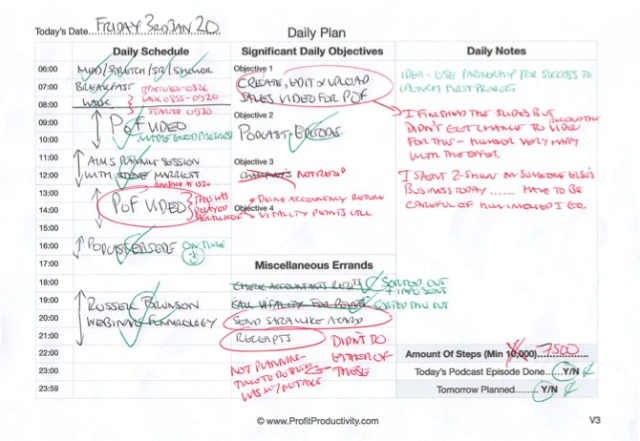 Today's Date FRIDAY 3RD JAN 20
Daily Plan
Daily Schedule
Significant Daily Objectives
Daily Notes
06:00
07:00
08:00
09:00
10:00
11:00
12:00
13:00
14:00
15:00
16:00
17:00
18:00
19:00
20:00
21:00
22:00
23:00
23:59
BREAKFAST
WALK
STARTED 0930
POF VIDEO
AIMS PLANNING SESSION
WITH
POF VIDEO
THIS WAS
DELAYED
PODCAST EPISODE
ON TIME
RUSSELL BRUNSON
WEBINAR
Objective 1
CREATE, EDIT & UPLOAD
SALES VIDEO FOR POF
Objective 2
PODCAST EPISODE
Objective 3
NOT NEEDED
Objective 4
VITALITY POINTS CALL
Miscellaneous Errands
CHECK ACCOUNTANT
SORTED OUT
CALL VITALITY FOR
SORTED THIS OUT
SEND A CARD
RECEIPTS
DIDN'T DO
EITHER OF
THESE
NOT PLANNING
TIME TO DO THEM
WAS MY MISTAKE
IDEA - USE PARTNERSHIP FOR SUCCESS TO
LAUNCH FIRST PRODUCT
I FINISHED THE SLIDES BUT
DIDN'T GET CHANCE TO VIDEO
FOR THIS - HOWEVER VERY HAPPY
WITH THE OFFER
I SPENT 2-3 HOURS ON SOMEONE ELSE'S
BUSINESS TODAY ...... HAVE TO BE
CAREFUL OF HOW INVOLVED I GO
Amount Of Steps (Min 10,000) 7500
Today's Podcast Episode Done..... Y/N
Tomorrow Planned........ Y/N
© www.ProfitProductivity.com
V3